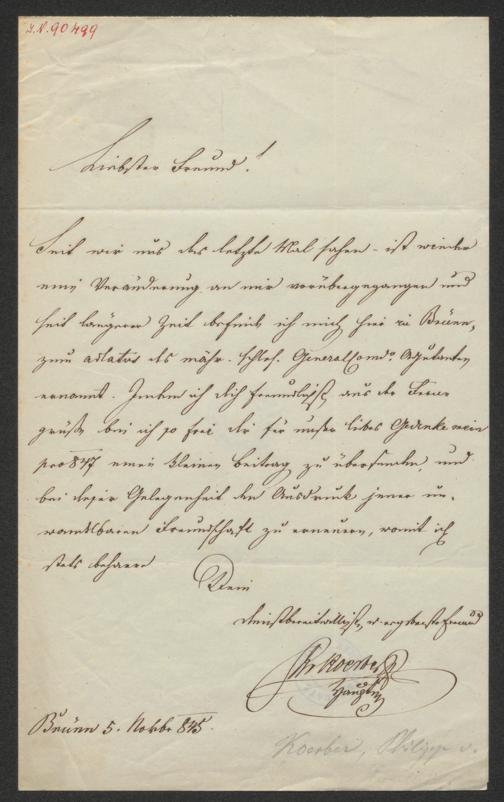 I.N. 90499
Liebster Freund!
Seit wir uns das letzte Mal sahen - ist wieder
eine Veränderung an mir vorübergegangen und
seit längerer Zeit befinde ich mich hier in Brünn,
zum adlatus des mähr. schles. Generalcomdo Adjutanten
ernannt. Indem ich dich freundlichst aus der Ferne
grüße bin ich so frei dir für unser liebes Gedenke mein
pro 847 einen kleinen Beitrag zu übersenden, und
bei dieser Gelegenheit den Ausdruck jener un-
wandelbaren Freundschaft zu erneuern, womit ich
stets beharre
Dein
dienstbereitwilligster, u. ergebenster Freund
Koerber
Hauptm
Brünn 5. Novbr 845.
Koerber, Philipp v.